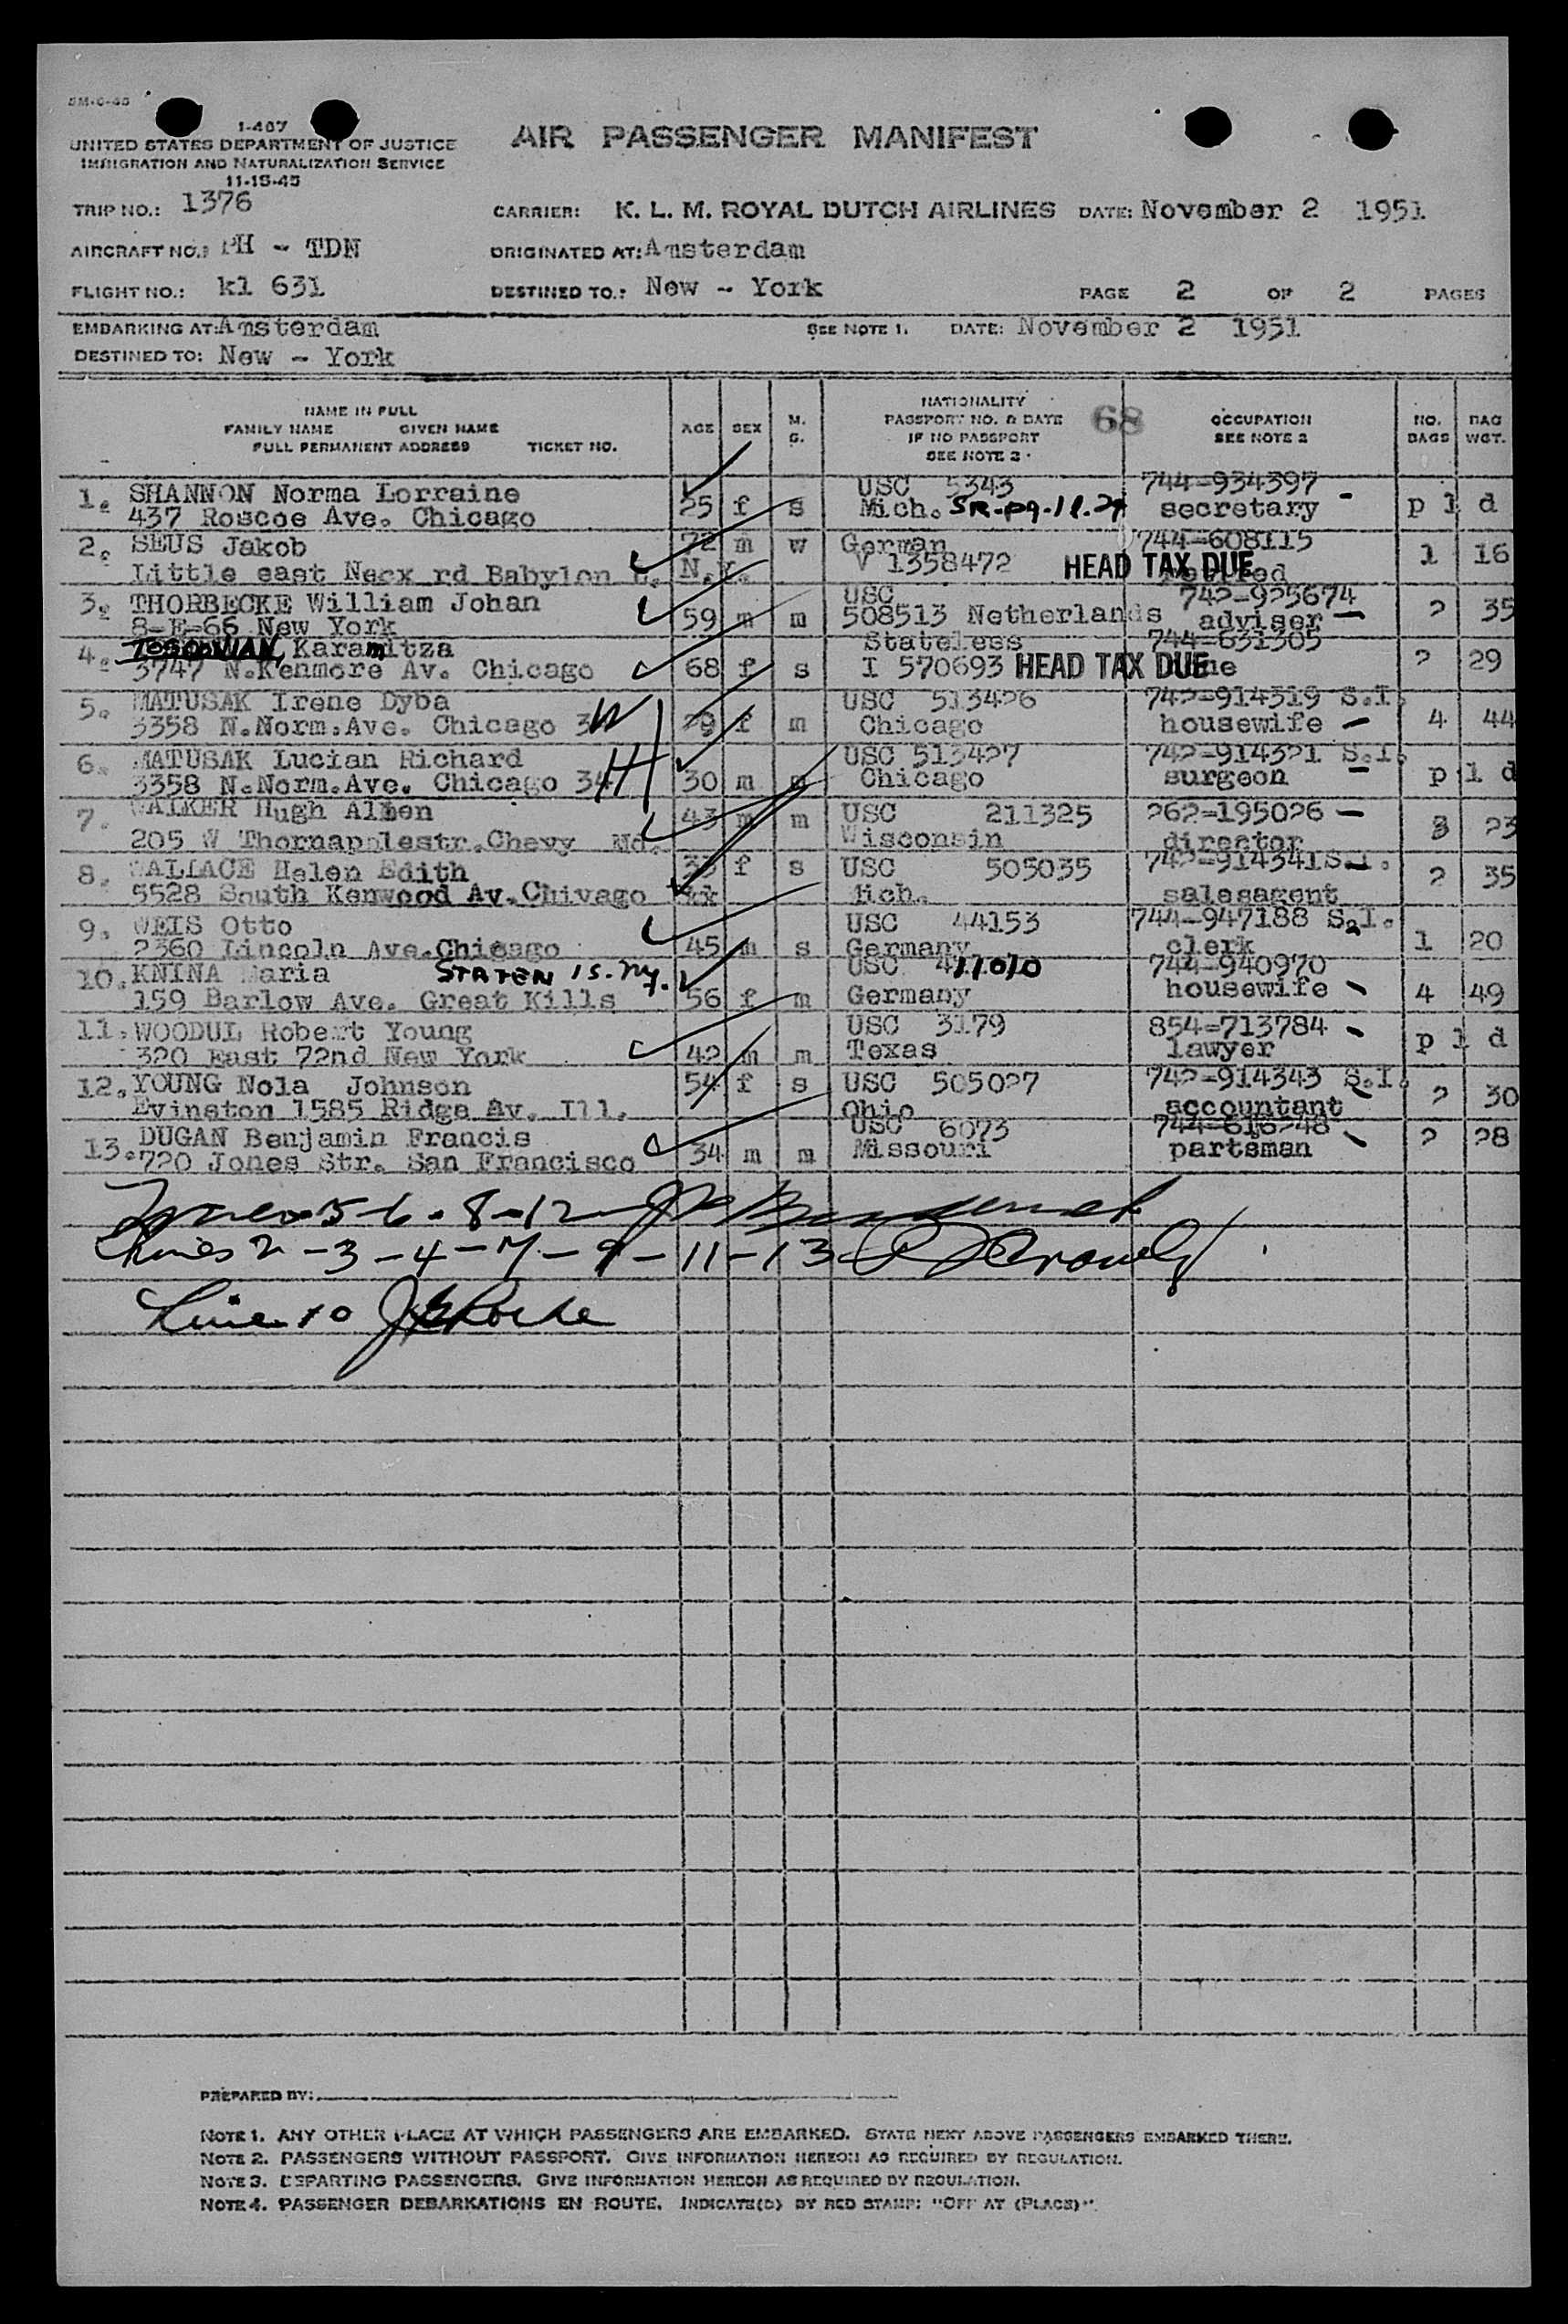 1-467
UNITED STATES DEPARTMENT OF JUSTICE
IMMIGRATION AND NATURALIZATION SERVICE
11-15-45
AIR PASSENGER MANIFEST
TRIP NO.: 1376
CARRIER: K. L. M. ROYAL DUTCH AIRLINES DATE: November 2 1951
AIRCRAFT NO.: PH - TDN
ORIGINATED AT: Amsterdam
FLIGHT NO.: kl 631
DESTINED TO.: New - York
PAGE 2 OF 2 PAGES
EMBARKING AT: Amsterdam
SEE NOTE 1. DATE: November 2 1951
DESTINED TO: New - York
NAME IN FULL
FAMILY NAME GIVEN NAME
FULL PERMANENT ADDRESS TICKET NO.
AGE SEX M. S.
NATIONALITY
PASSPORT NO. & DATE
IF NO PASSPORT
SEE NOTE 2
68
OCCUPATION
SEE NOTE 2
NO. BAGS
BAG WGT.
1. SHANNON Norma Lorraine USC 5343 744-934397
437 Roscoe Ave. Chicago 25 f s Mich. secretary - p l d
2. SEUS Jakob 72 m w German 744-608115
Little east Neck rd Babylon L. N.Y. V 1358472 HEAD TAX DUE retired 1 16
3. THORBECKE William Johan USC 742-925674
8-E-66 New York 59 m m 508513 Netherlands adviser - 2 35
4. Karamitza Stateless 744-631305
3747 N.Kenmore Av. Chicago 68 f s I 570693 HEAD TAX DUE 2 29
5. MATUSAK Irene Dyba USC 513426 742-914319 S.I.
3358 N.Norm.Ave. Chicago 34 29 f m Chicago housewife - 4 44
6. MATUSAK Lucian Richard USC 513427 742-914321 S.I.
3358 N.Norm.Ave. Chicago 34 30 m m Chicago surgeon - p l d
7. WALKER Hugh Alben 43 m m USC 211325 262-195026 -
205 W Thornapplestr.Chevy Md. Wisconsin director 3 23
8. WALLACE Helen Edith 33 f s USC 505035 742-914341 S.I.
5528 South Kenwood Av.Chivago Mch. salesagent 2 35
9. WEIS Otto USC 44153 744-947188 S.I.
2360 Lincoln Ave.Chicago 45 m s Germany clerk 1 20
10. KNINA Maria STATEN IS. NY. USC 744-940970
159 Barlow Ave. Great Kills 56 f m Germany housewife - 4 49
11. WOODUL Robert Young USC 3179 854-713784 -
320 East 72nd New York 42 m m Texas lawyer p l d
12. YOUNG Nola Johnson 54 f s USC 505027 742-914343 S.I.
Evinston 1585 Ridge Av. Ill. Ohio accountant 2 30
13. DUGAN Benjamin Francis USC 6073 744-616248
720 Jones Str. San Francisco 34 m m Missouri partsman - 2 28
5-6-8-12
Lines 2-3-4-7-9-11-13
Line 10
PREPARED BY:
NOTE 1. ANY OTHER PLACE AT WHICH PASSENGERS ARE EMBARKED. STATE NEXT ABOVE PASSENGERS EMBARKED THERE.
NOTE 2. PASSENGERS WITHOUT PASSPORT. GIVE INFORMATION HEREON AS REQUIRED BY REGULATION.
NOTE 3. DEPARTING PASSENGERS. GIVE INFORMATION HEREON AS REQUIRED BY REGULATION.
NOTE 4. PASSENGER DEBARKATIONS EN ROUTE. INDICATE(D) BY RED STAMP: "OFF AT (PLACE)".